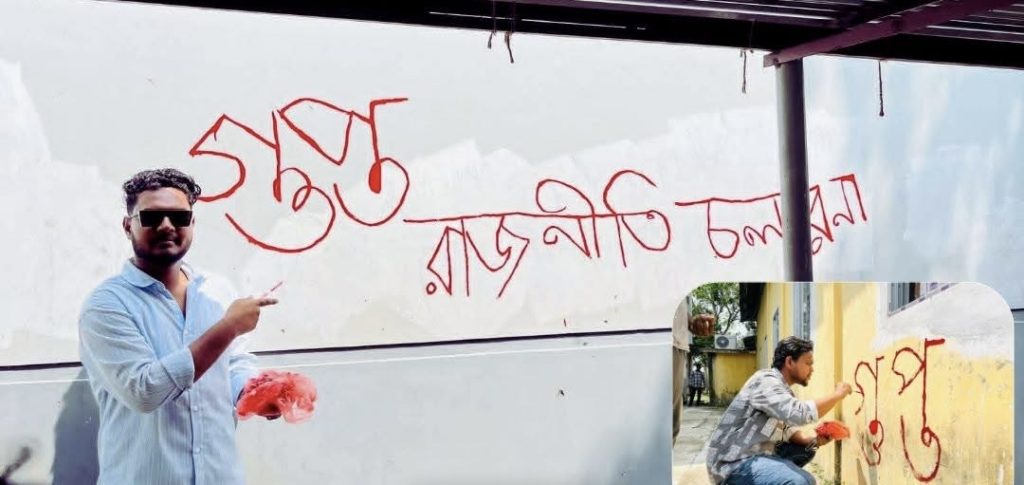 গুপ্ত
রাজনীতি চলবেনা
গুপ্ত